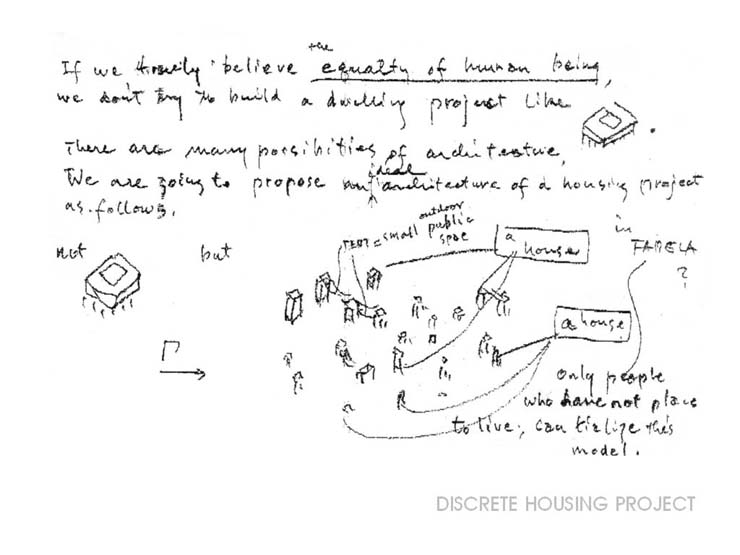 If we believe the equality of human being,
we don't try to build a dwelling project like .
There are many possibilities of architecture,
We are going to propose an ideal architecture of a housing project
as follows.
not but
TENT = small outdoor public space
a house
in FABELA ?
a house
only people
who have not place
to live, can this
model.
DISCRETE HOUSING PROJECT